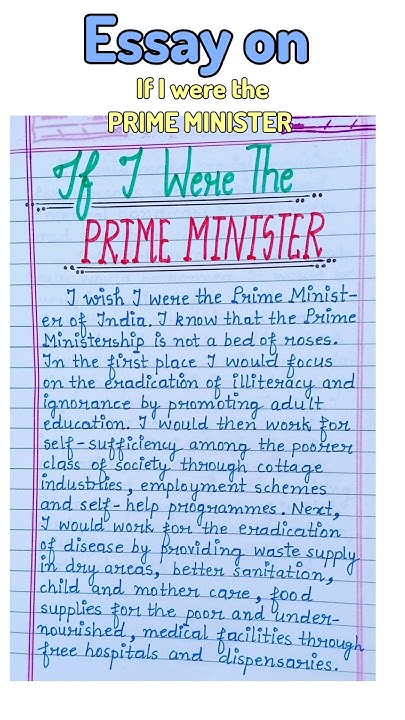 Essay on
If I were the
PRIME MINISTER
If I Were The
PRIME MINISTER
I wish I were the Prime Minist-
er of India. I know that the Prime
Ministership is not a bed of roses.
In the first place I would focus
on the eradication of illiteracy and
ignorance by promoting adult
education. I would then work for
self-sufficiency among the poorer
class of society through cottage
industries, employment schemes
and self-help programmes. Next,
I would work for the eradication
of disease by providing waste supply
in dry areas, better sanitation,
child and mother care, food
supplies for the poor and under-
nourished, medical facilities through
free hospitals and dispensaries.